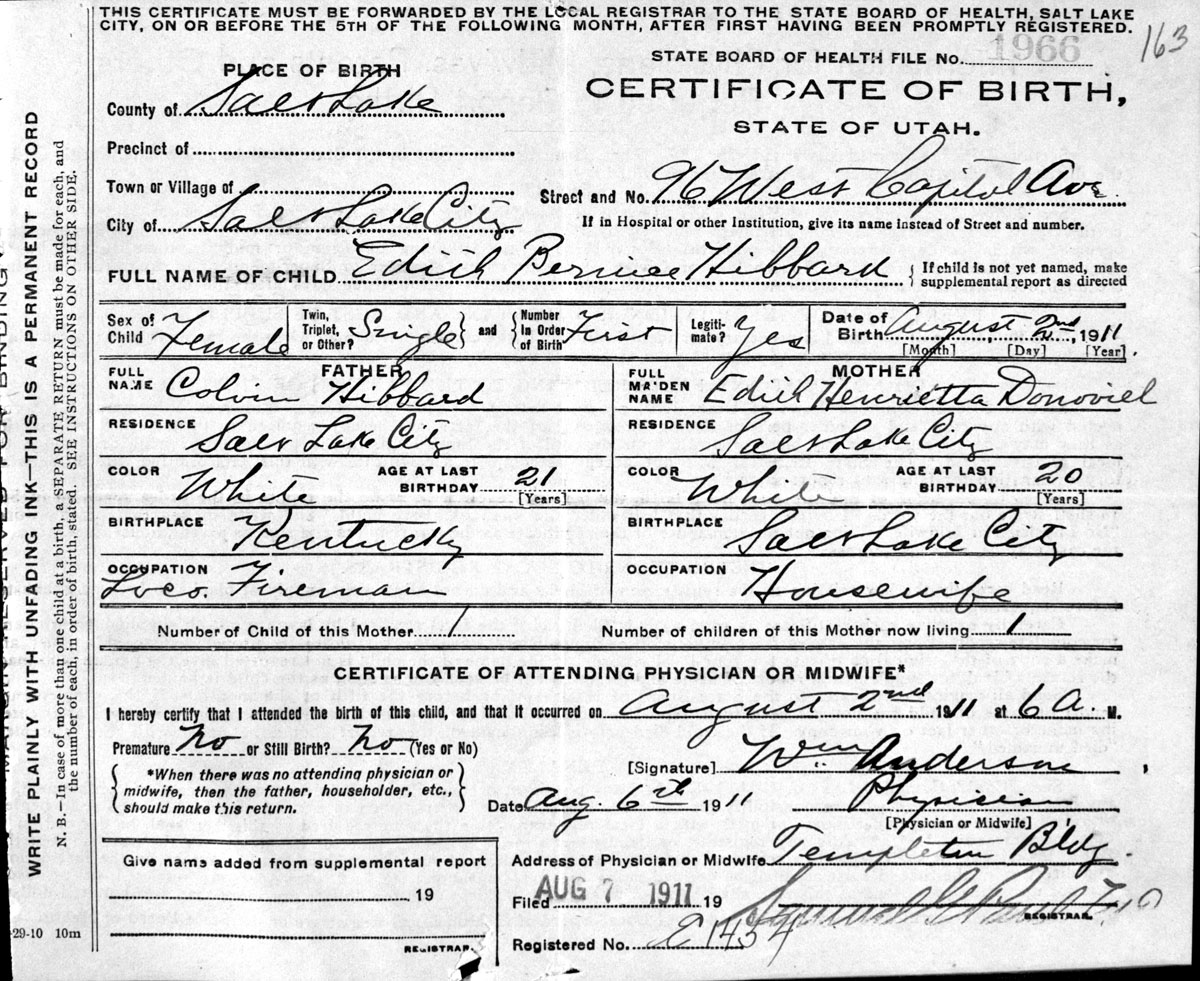 THIS CERTIFICATE MUST BE FORWARDED BY THE LOCAL REGISTRAR TO THE STATE BOARD OF HEALTH, SALT LAKE
CITY, ON OR BEFORE THE 5TH OF THE FOLLOWING MONTH, AFTER FIRST HAVING BEEN PROMPTLY REGISTERED.
163
STATE BOARD OF HEALTH FILE No. 1966
PLACE OF BIRTH
CERTIFICATE OF BIRTH,
County of Salt Lake
STATE OF UTAH.
Precinct of
Town or Village of
Street and No. 96 West Capitol Ave.
City of Salt Lake City
If in Hospital or other Institution, give its name instead of Street and number.
FULL NAME OF CHILD Edith Bernice Hibbard { If child is not yet named, make
supplemental report as directed
Sex of Child Female
Twin, Triplet, or Other? Single } and { Number In Order of Birth First
Legiti-mate? Yes
Date of Birth August 2nd, 1911
[Month] [Day] [Year]
FATHER
FULL NAME Colvin Hibbard
RESIDENCE Salt Lake City
COLOR White AGE AT LAST BIRTHDAY 21
[Years]
BIRTHPLACE Kentucky
OCCUPATION Loco. Fireman
MOTHER
FULL MAIDEN NAME Edith Henrietta Donoviel
RESIDENCE Salt Lake City
COLOR White AGE AT LAST BIRTHDAY 20
[Years]
BIRTHPLACE Salt Lake City
OCCUPATION Housewife
Number of Child of this Mother 1 Number of children of this Mother now living 1
CERTIFICATE OF ATTENDING PHYSICIAN OR MIDWIFE*
I hereby certify that I attended the birth of this child, and that it occurred on August 2nd 1911 at 6 A. M.
Premature No or Still Birth? No (Yes or No)
{ *When there was no attending physician or
midwife, then the father, householder, etc.,
should make this return. }
[Signature] Wm Anderson
Date Aug. 6th 1911 Physician
[Physician or Midwife]
Give name added from supplemental report
19
REGISTRAR.
Address of Physician or Midwife Templeton Bldg.
Filed AUG 7 1911 19
REGISTRAR.
Registered No. 2 1454
-29-10 10m
WRITE PLAINLY WITH UNFADING INK—THIS IS A PERMANENT RECORD
N. B.—In case of more than one child at a birth, a SEPARATE RETURN must be made for each, and
the number of each, in order of birth, stated. SEE INSTRUCTIONS ON OTHER SIDE.